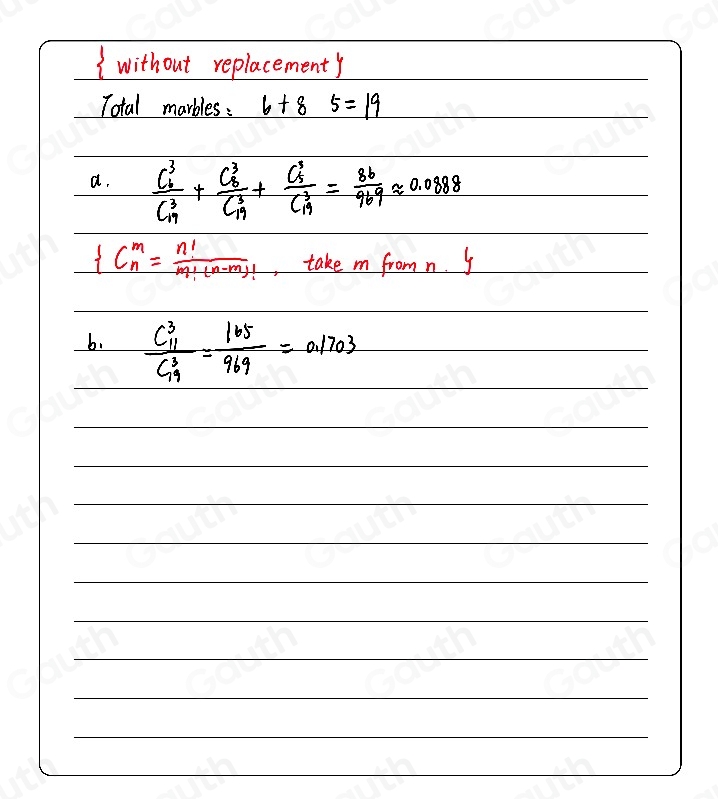 { without replacement }
Total marbles: 6 + 8 5 = 19
a. C_6^3/C_19^3 + C_8^3/C_19^3 + C_5^3/C_19^3 = 86/969 ≈ 0.0888
{ C_n^m = n!/m!(n-m)! , take m from n. }
b. C_11^3/C_19^3 = 165/969 = 0.1703
Gauth